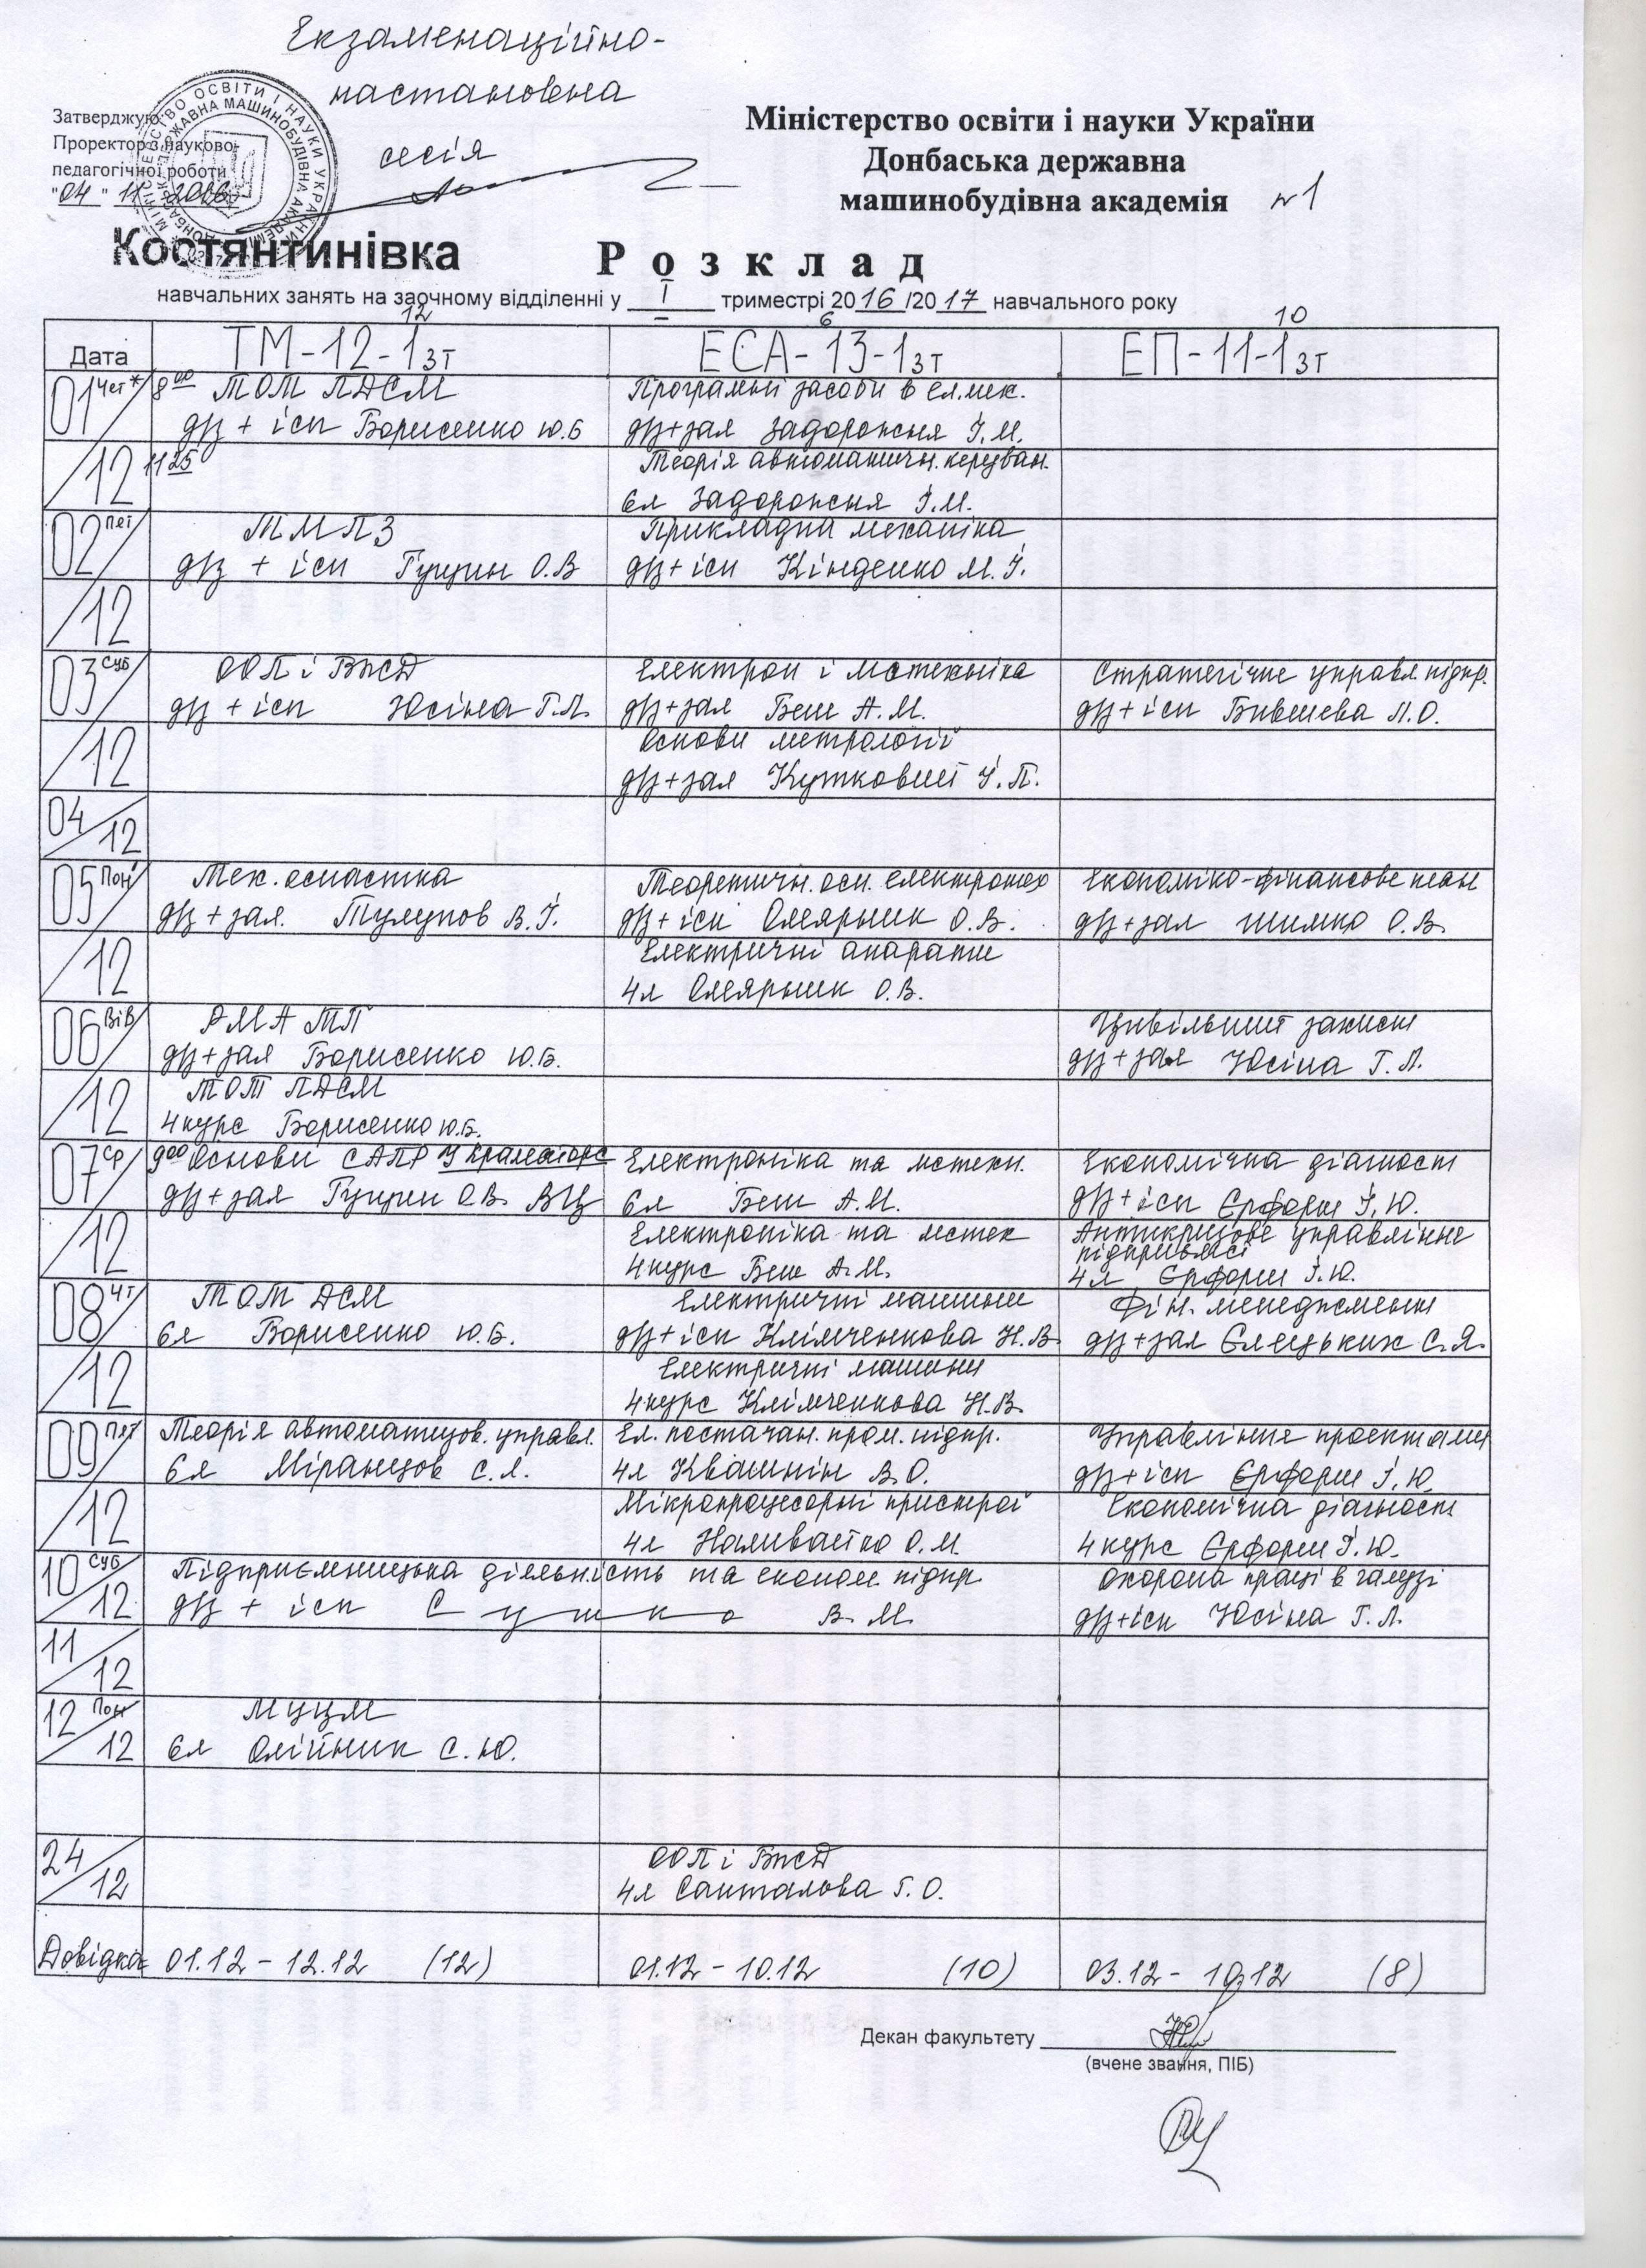 Екзаменаційно-
настановна
сесія
Затверджую:
Проректор з науково-
педагогічної роботи
"04" 11 2016
Міністерство освіти і науки України
Донбаська державна
машинобудівна академія №1
Костянтинівка
Розклад
навчальних занять на заочному відділенні у I триместрі 2016/2017 навчального року
12 6 10
Дата ТМ-12-1зт ЕСА-13-1зт ЕП-11-1зт
01 Чет 8 00 ТОМ ПДСМ Програмні засоби в ел.мех.
дз + ісп Борисенко Ю.Б дз+зал Задорожня І.М.
/12 11 25 Теорія автоматичн. керуван.
6л Задорожня І.М.
02 Пят ТМПЗ Прикладна механіка
дз + ісп Гущин О.В дз+ісп Кінденко М.І.
/12
03 Суб ООП і ВПСД Електрон і мстехніка Стратегічне управл. підпр.
дз + ісп Юсіна Г.Л. дз+зал Беш А.М. дз+ісп Бившева Л.О.
/12 Основи метрології
дз+зал Кутковий І.П.
04/12
05 Пон Мех. оснастка Теоретичн. осн. електротех Економіко-фінансове план
дз + зал. Тулупов В.І. дз+ісп Олярник О.В. дз+зал Шимко О.В.
/12 Електричні апарати
4л Олярник О.В.
06 Вів РМА ТП Цивільний захист
дз+зал Борисенко Ю.Б. дз+зал Юсіна Г.Л.
/12 ТОТ ПДСМ
4курс Борисенко Ю.Б.
07 Ср 9 00 Основи САПР У Краматорс Електроніка та мстехн. Економічна діагност
дз+зал Гущин О.В. ВЦ 6л Беш А.М. дз+ісп Єрфорт І.Ю.
/12 Електроніка та мстех Антикризове управлінне
підприємсі
4курс Беш А.М. 4л Єрфорт І.Ю.
08 Чт ТОМ ДСМ Електричні машини Фін. менеджмент
6л Борисенко Ю.Б. дз+ісп Клімченкова Н.В. дз+зал Єлецьких С.Я.
/12 Електричні машини
4курс Клімченкова Н.В.
09 Пят Теорія автоматизов. управл. Ел. постачан. пром. підпр. Управління проектами
6л Міранцов С.Л. 4л Квашнін В.О. дз+ісп Єрфорт І.Ю.
/12 Мікропроцесорні пристрої Економічна діагност
4л Наливайко О.М. 4курс Єрфорт І.Ю.
10 Суб Підприємницька діяльність та економ. підпр. Охорона праці в галузі
/12 дз + ісп Сушко В.М. дз+ісп Юсіна Г.Л.
11/12
12 Пон МУЦМ
/12 6л Олійник С.Ю.
24 ООП і ВПСД
/12 4л Санталова Г.О.
Довідка 01.12 - 12.12 (12) 01.12 - 10.12 (10) 03.12 - 10.12 (8)
Декан факультету
(вчене звання, ПІБ)